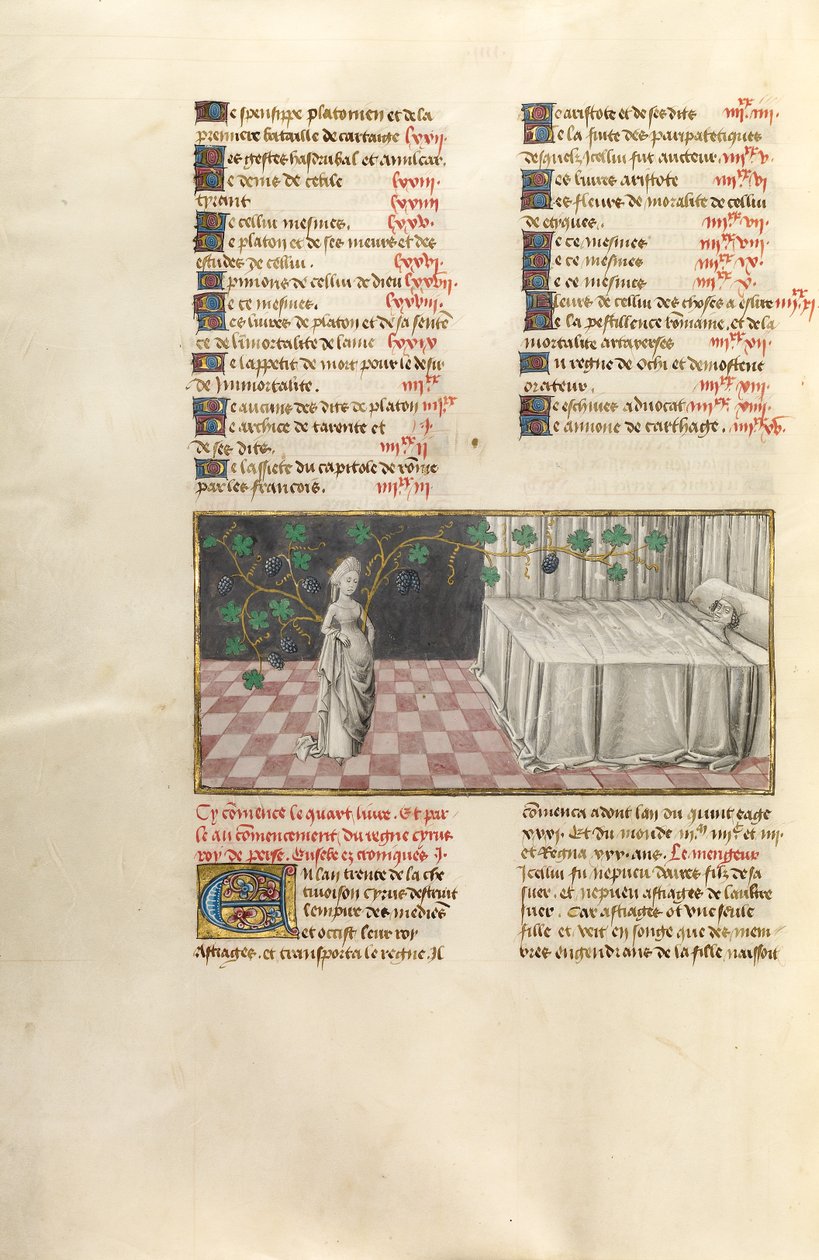 De speusippe platonien et de la
premiere bataille de cartaige lxxii.
Des gestes hasdrubal et amilcar.
De denis de cecile lxxiii.
tyrant lxxiiii
De cellui mesmes. lxxv.
De platon et de ses meurs et des
estudes de cellui. lxxvi.
Opinions de cellui de dieu lxxvii.
De ce mesmes. lxxviii.
Des livres de platon et de sa sentē
ce de līmortalite de lame lxxix
De lappetit de mort pour le desir
de Immortalite. iiiixx
De aucuns des dits de platon iiiixx
De archite de tarente et .i.
de ses dits. iiiixx ii
De lassiete du capitole de rōme
par les francois. iiiixx iii.
De aristote et de ses dits iiiixx iiii.
De la suite des paripatetiques
desquelz Icellui fut aucteur. iiiixx v.
Des livres aristote iiiixx vi
Des fleurs de moralite de cellui
de etiques. iiiixx vii.
De ce mesmes iiiixx viii.
De ce mesmes iiiixx ix.
De ce mesmes iiiixx x.
Fleurs de cellui des choses a eslire iiiixx xi
De la pestillence rōmaine. et de la
mortalite artaxerses iiiixx xii.
Du regne de Ochi et demostene
orateur. iiiixx xiii.
De eschines advocat iiiixx xiiii.
De annone de carthage. iiiixx xv.
Cy cōmence le quart livre. Et par
le au cōmencement du regne cyrus
roy de perse. Eusebe ez croniques .i.
En lan trente de la che
tivoison Cyrus destruit
lempire des mediēs
et occist leur roy
Astiages. et transporta le regne. Il
cōmenca adont lan du quint eage
xxxi. Et du monde iiim iiiic et iiii.
et Regna xxx. ans. Le mengeur
Icellui fu nepueu daires filz de sa
suer. et nepueu astiages de laultre
suer. Car astiages ot une seule
fille et veit en songe que des mem
bres engendrans de la fille naissoit